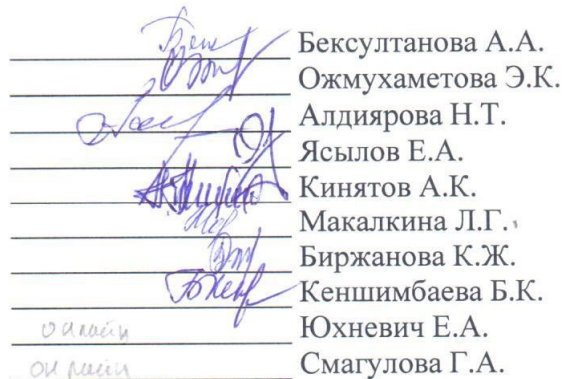 Бексултанова А.А.
Ожмухаметова Э.К.
Алдиярова Н.Т.
Ясылов Е.А.
Кинятов А.К.
Макалкина Л.Г.
Биржанова К.Ж.
Кеншимбаева Б.К.
онлайн Юхневич Е.А.
онлайн Смагулова Г.А.